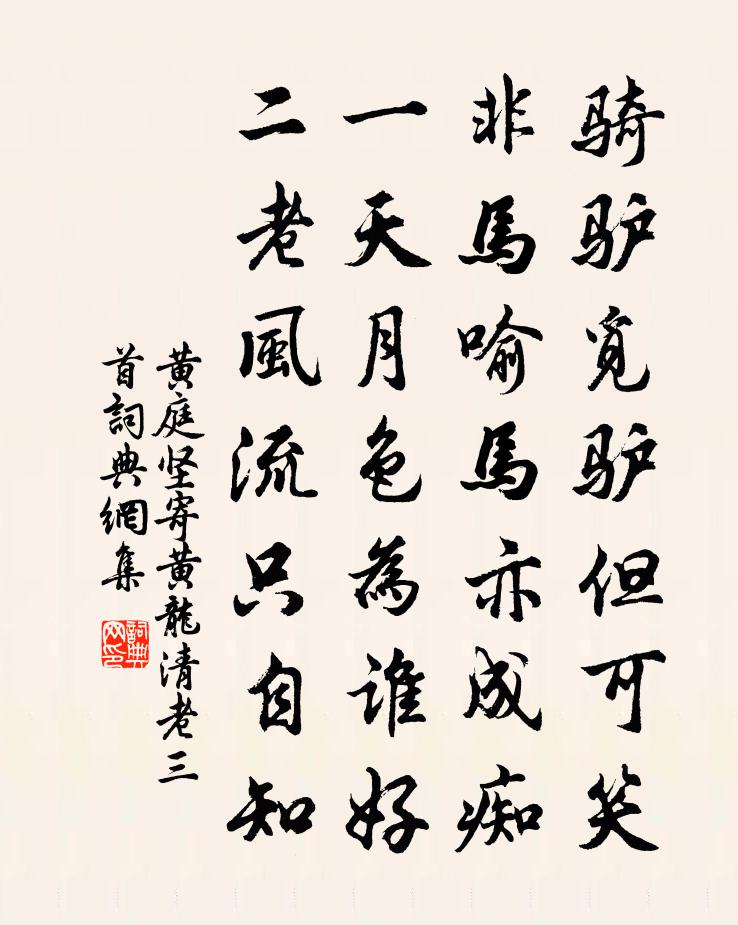 骑驴觅驴但可笑
非馬喻馬亦成痴
一天月色為谁好
二老風流只自知
黄庭坚寄黄龍清老三
首詞典網集
詞典
网印